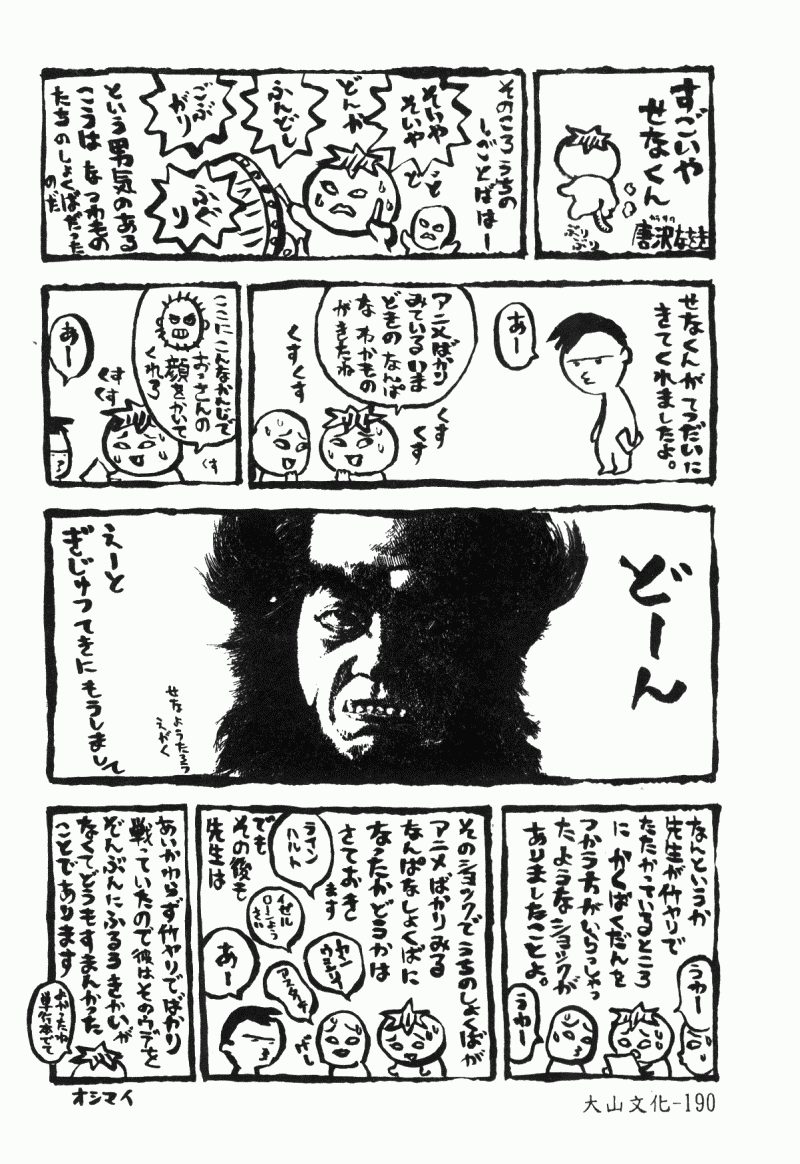 すごいや
せなくん
唐沢なをき
ぷりぷり
そのころうちの
しごとばはー
そいや
そいや
どんか
どど
ふんどし
ごぶ
がり
ふぐ
り
という男気のある
こうはなつわもの
たちのしょくばだった
のだ
せなくんがてつだいに
きてくれましたよ。
あー
アニメばかり
みているいま
どきのなんぱ
なわかもの
がきたね
くす
くす
くすくす
ここにこんなかんじで
おっさんの
顔をかいて
くれろ
くす
くす
くす
あー
どーん
せなようたろう
えがく
えーと
ぎじゅつてきにもうしまして
なんというか
先生が竹ヤリで
たたかっているところ
にかくばくだんを
つかう方がいらっしゃっ
たようなショックが
ありましたことよ。
うわー
うわー
そのショックでうちのしょくばが
アニメばかりみる
なんぱなしょくばに
なったかどうかは
さておき
ます
ライン
ハルト
イゼル
ローンよう
さい
ヤン
ウェンリー
アスターテ
でも
その後も
先生は
あー
げー
あいかわらず竹ヤリでばかり
戦っていたので彼はそのウデを
ぞんぶんにふるうきかいが
なくてどうもすまんかった
ことであります
よかったね
単行本でて
オシマイ
大山文化-190